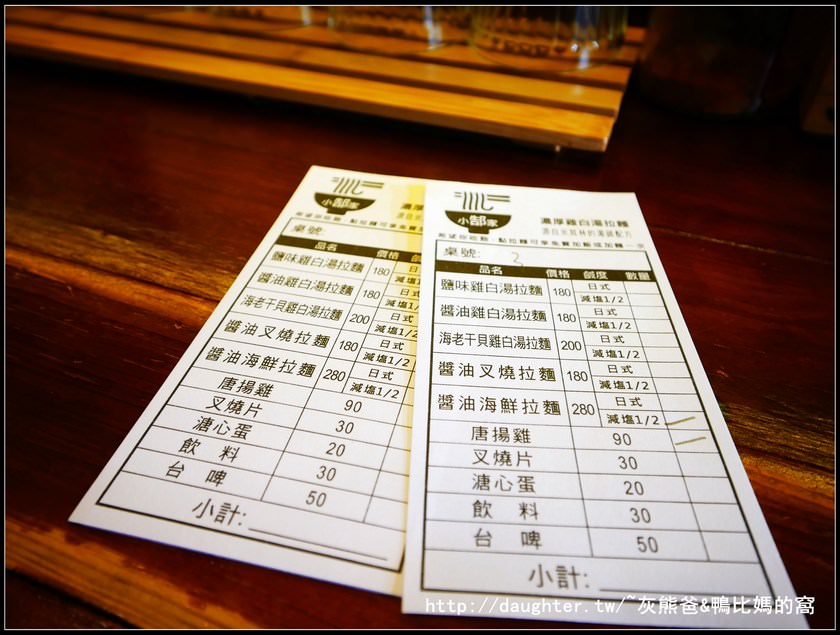 小郜家
濃厚
桌號:
品名 價格
鹽味雞白湯拉麵 180 日式
減塩1/2
醬油雞白湯拉麵 180 日式
減塩1/2
海老干貝雞白湯拉麵 200 日式
減塩1/2
醬油叉燒拉麵 180 日式
減塩1/2
醬油海鮮拉麵 280 日式
減塩1/2
唐揚雞 90
叉燒片 30
溏心蛋 20
飲 料 30
台 啤 50
小計:
小郜家
濃厚雞白湯拉麵
桌號: 3
品名 價格 鹹度 數量
鹽味雞白湯拉麵 180 日式
減塩1/2
醬油雞白湯拉麵 180 日式
減塩1/2
海老干貝雞白湯拉麵 200 日式
減塩1/2
醬油叉燒拉麵 180 日式
減塩1/2
醬油海鮮拉麵 280 日式
減塩1/2
唐揚雞 90
叉燒片 30
溏心蛋 20
飲 料 30
台 啤 50
小計:
http://daughter.tw/~灰熊爸&鴨比媽的窩